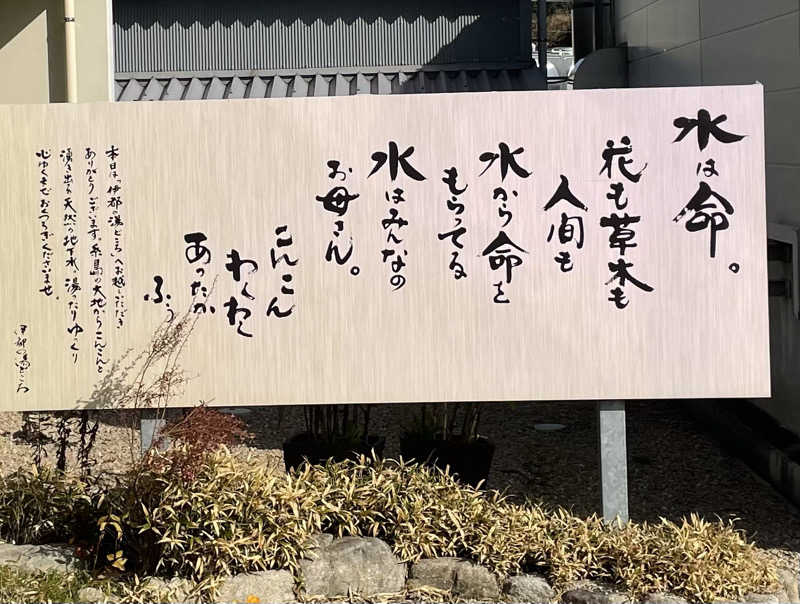 水は命。
花も草木も
人間も
水から命を
もらってる
水はみんなの
お母さん。
こんこん
わくわく
あったか
ふぅ
本日は「伊都の湯どころ」へお越しいただき
ありがとうございます。糸島の大地からこんこんと
湧き出る天然の地下水、湯ったりゆっくり
心ゆくまでおくつろぎくださいませ。
伊都の湯どころ